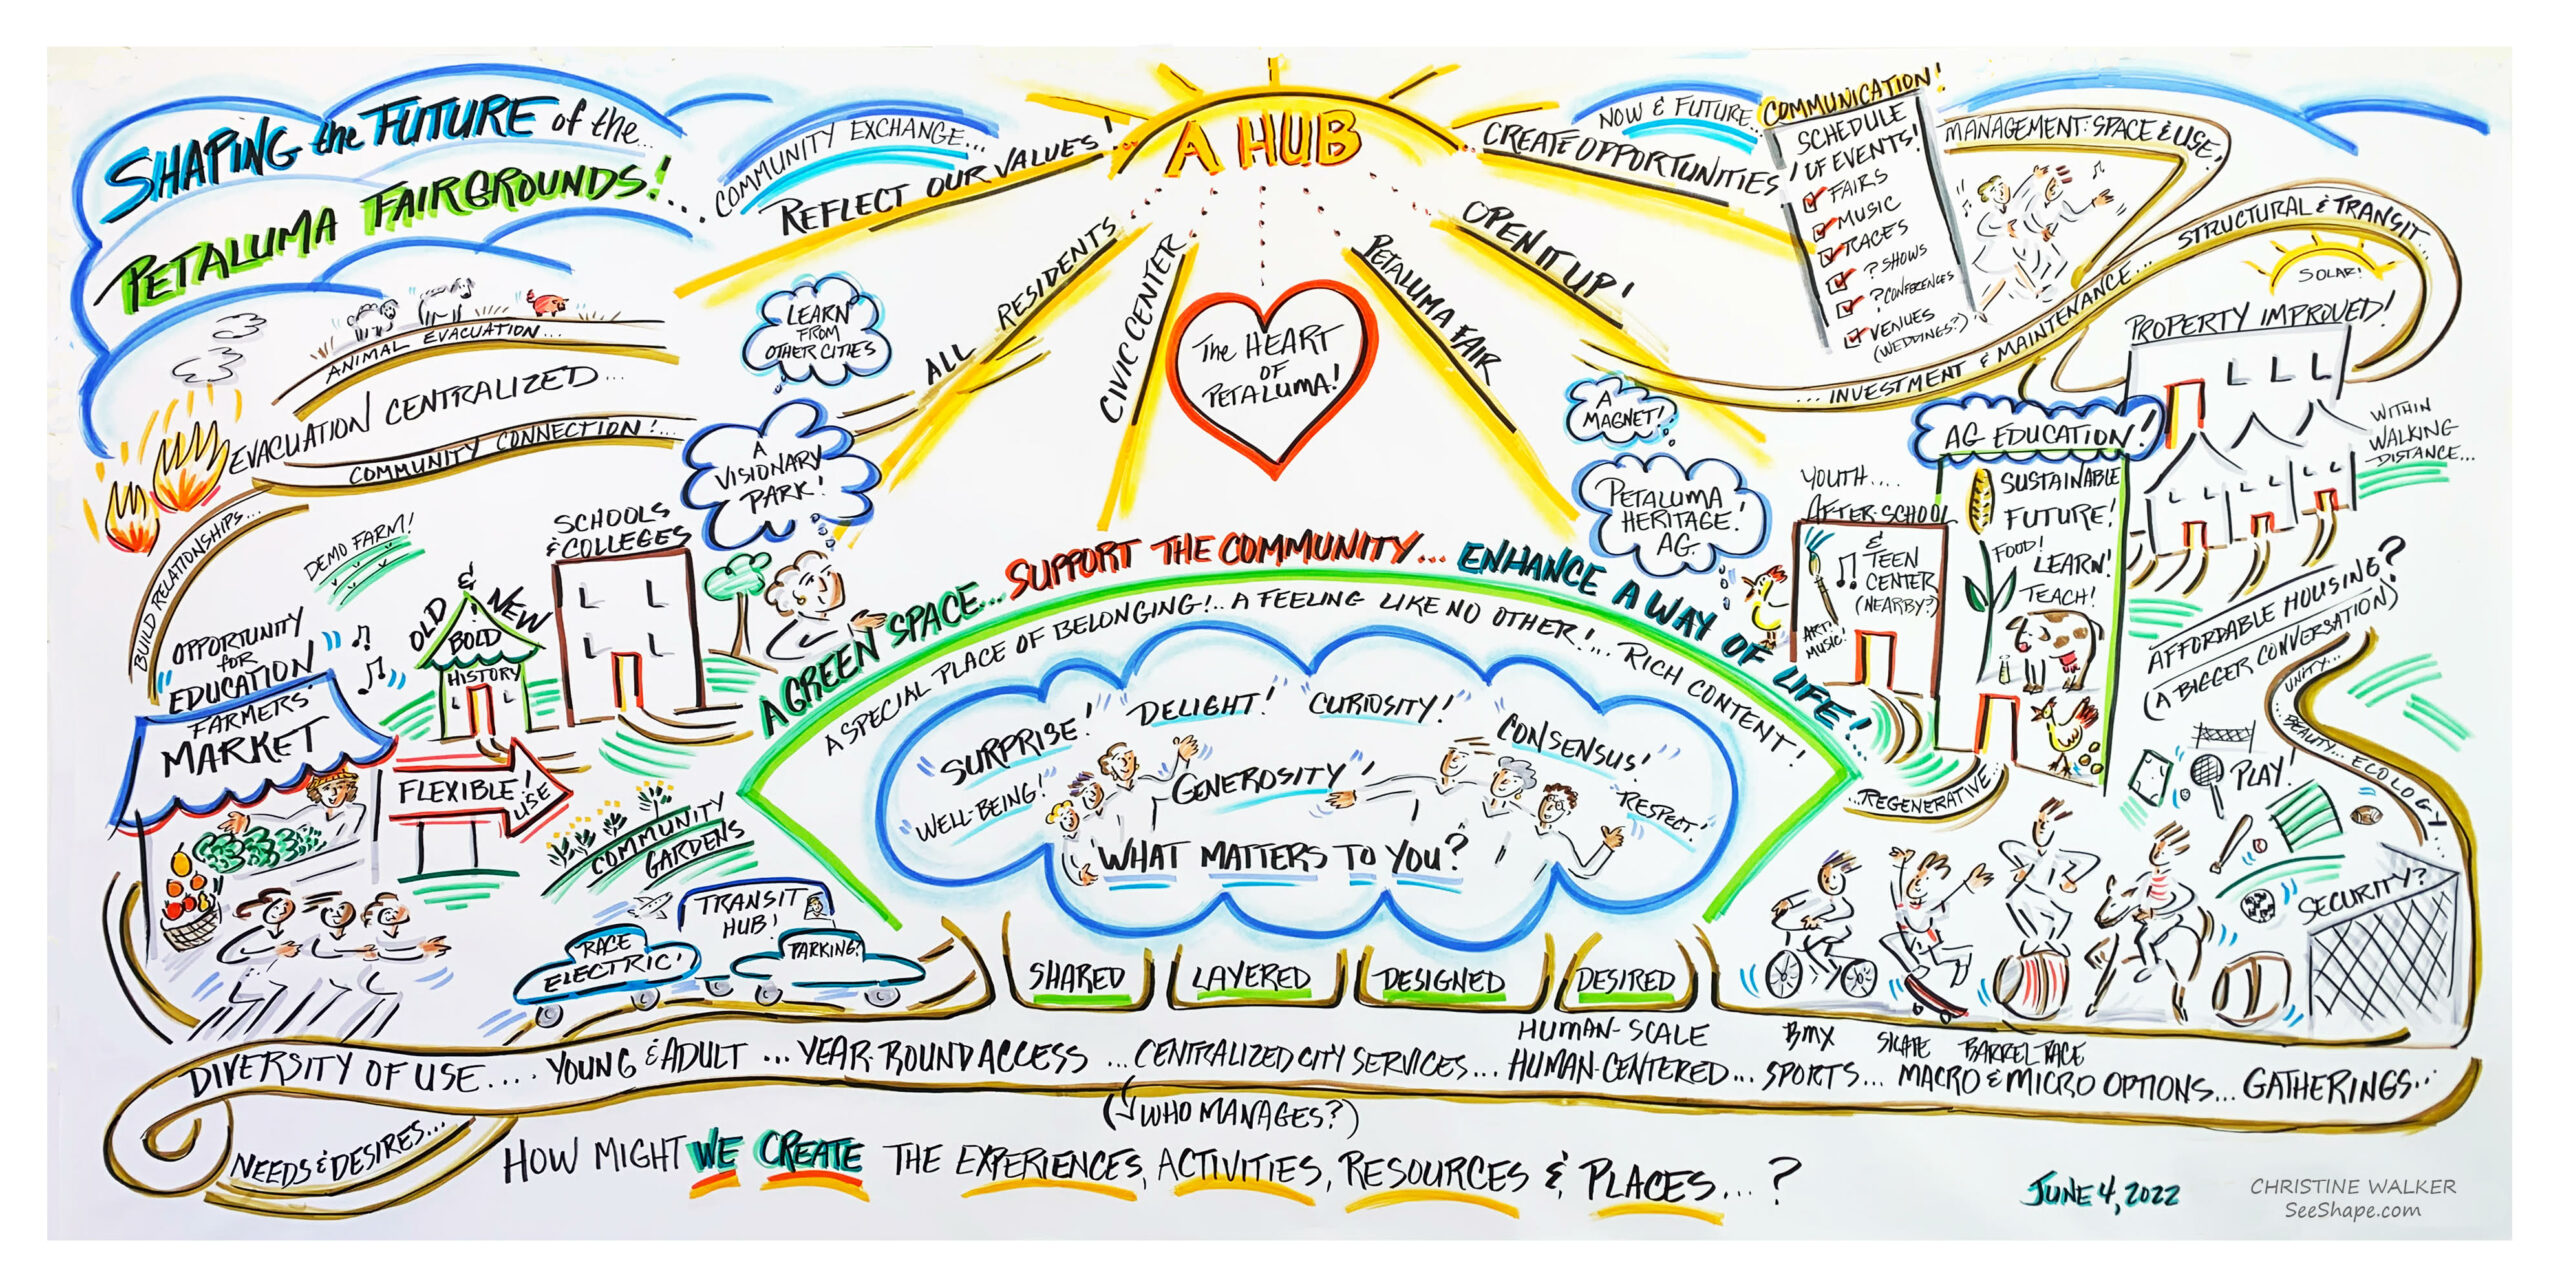 SHAPING the FUTURE of the...
PETALUMA FAIRGROUNDS!...
COMMUNITY EXCHANGE...
REFLECT OUR VALUES!
A HUB
CREATE OPPORTUNITIES
NOW & FUTURE...
COMMUNICATION!
SCHEDULE
OF EVENTS!
FAIRS
MUSIC
RACES
? SHOWS
? CONFERENCES
VENUES
(WEDDINGS?)
MANAGEMENT: SPACE & USE,
STRUCTURAL & TRANSIT...
...INVESTMENT & MAINTENANCE...
SOLAR!
PROPERTY IMPROVED!
WITHIN
WALKING
DISTANCE...
ALL RESIDENTS
CIVIC CENTER
The HEART
OF
PETALUMA!
PETALUMA FAIR
OPEN IT UP!
ANIMAL EVACUATION...
EVACUATION CENTRALIZED...
COMMUNITY CONNECTION!...
BUILD RELATIONSHIPS...
LEARN
FROM
OTHER CITIES
A
VISIONARY
PARK!
A
MAGNET!
PETALUMA
HERITAGE!
AG.
DEMO FARM!
SCHOOLS
& COLLEGES
OLD & NEW
BOLD
HISTORY
"OPPORTUNITY
for
EDUCATION"
FARMERS'
MARKET
FLEXIBLE!
USE
COMMUNITY
GARDENS
TRANSIT
HUB!
RACE
ELECTRIC!
PARKING?
A GREEN SPACE... SUPPORT THE COMMUNITY... ENHANCE A WAY OF LIFE!...
A SPECIAL PLACE OF BELONGING!.. A FEELING LIKE NO OTHER!... RICH CONTENT!
"SURPRISE!"
"DELIGHT!"
"CURIOSITY!"
"CONSENSUS!"
"WELL-BEING!"
"GENEROSITY!"
"RESPECT!"
WHAT MATTERS TO YOU?
SHARED
LAYERED
DESIGNED
DESIRED
YOUTH....
AFTER SCHOOL
&
TEEN
CENTER
(NEARBY?)
ART!
MUSIC!
AG EDUCATION!
SUSTAINABLE
FUTURE!
FOOD!
LEARN!
TEACH!
...REGENERATIVE...
AFFORDABLE HOUSING?
(A BIGGER CONVERSATION)
UNITY...
...BEAUTY... ECOLOGY...
PLAY!
SECURITY?
BMX
SKATE
BARREL RACE
HUMAN-SCALE
DIVERSITY OF USE.... YOUNG & ADULT ... YEAR-ROUND ACCESS ...CENTRALIZED CITY SERVICES... HUMAN-CENTERED... SPORTS... MACRO & MICRO OPTIONS... GATHERINGS...
(WHO MANAGES?)
NEEDS & DESIRES...
HOW MIGHT WE CREATE THE EXPERIENCES, ACTIVITIES, RESOURCES & PLACES...?
JUNE 4, 2022
CHRISTINE WALKER
SeeShape.com